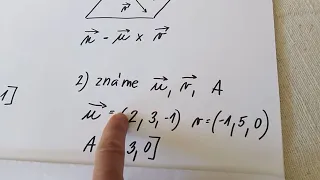 v
n - u x v
1]
2) známe u, v, A
u = (2, 3, -1) v = (-1, 5, 0)
A 3, 0]